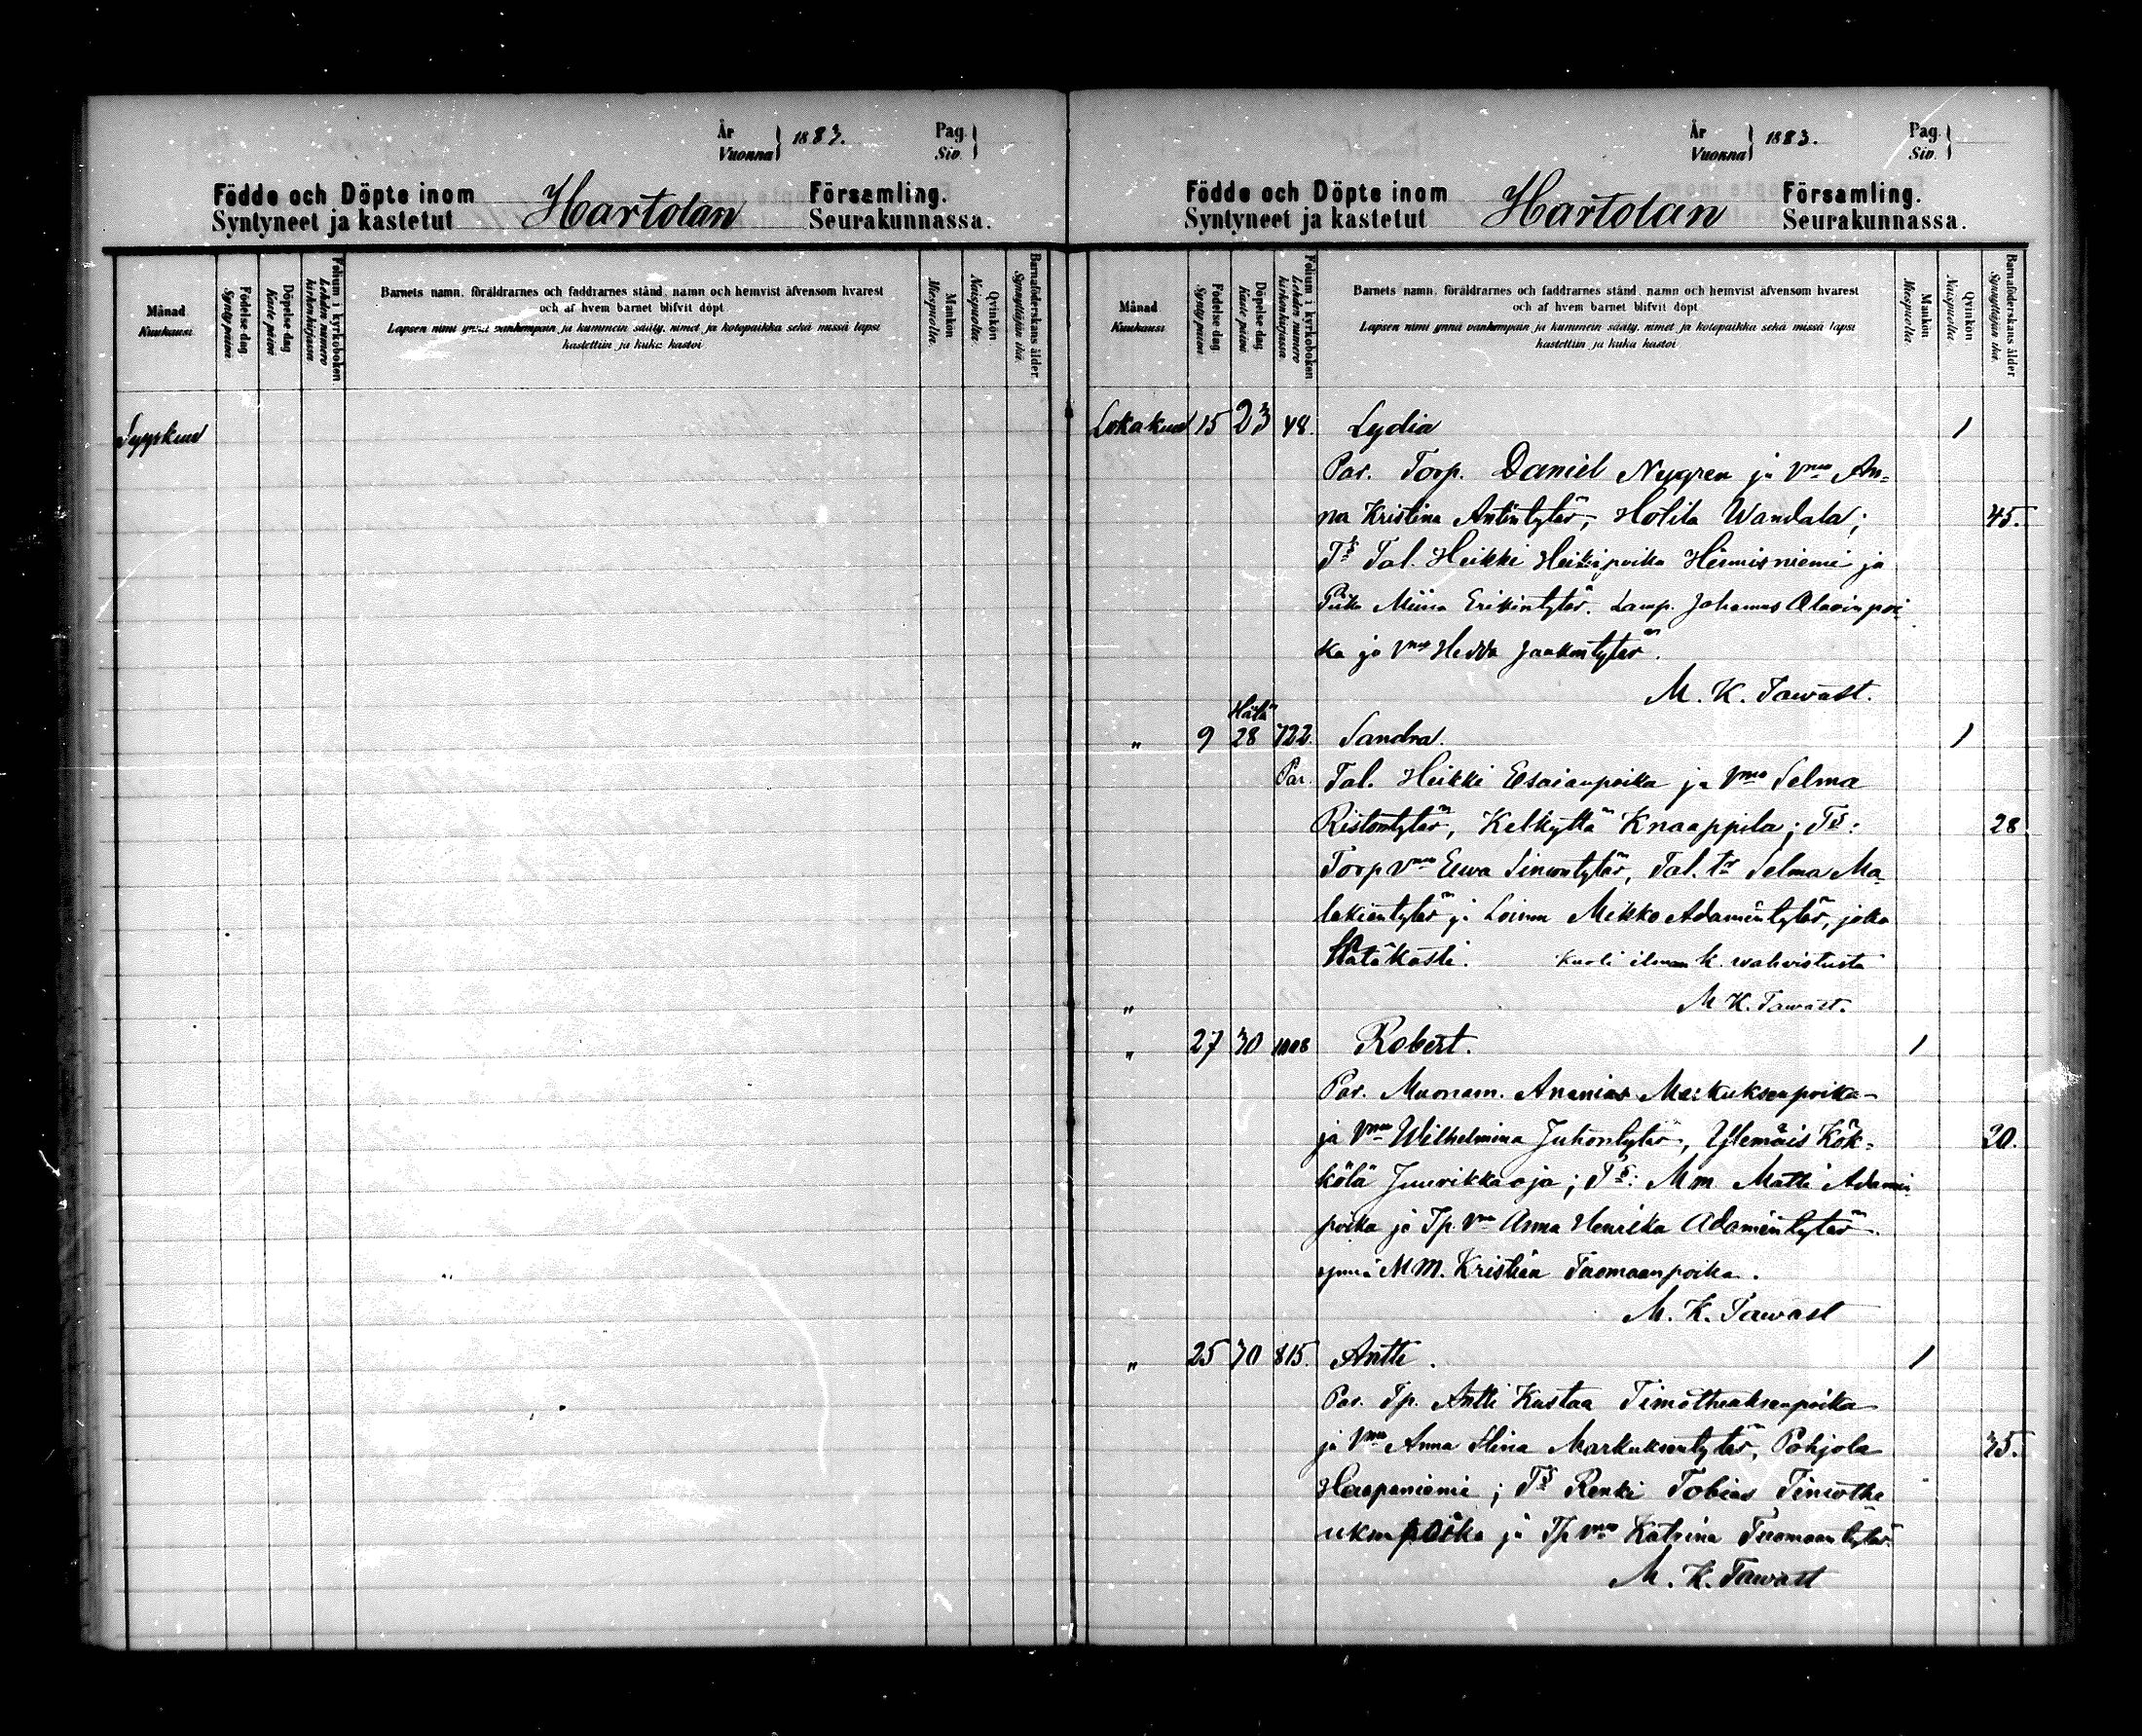 År Vuonna } 1883. Pag. Siv. }
Födde och Döpte inom Hartolan Församling.
Syntyneet ja kastetut Seurakunnassa.
Månad Kuukausi
Födelse dag Synty päivä
Döpelse dag Kaste päivä
Folium i kyrkoboken Lehden numero kirkonkirjassa
Barnets namn, föräldrarnes och faddrarnes stånd, namn och hemvist äfvensom hvarest
och af hvem barnet blifvit döpt
Lapsen nimi ynnä vanhempain ja kummein sääty, nimet ja kotopaikka sekä missä lapsi
kastettiin ja kuka kastoi
Mankön Miespuolia.
Qvinkön Naispuolia.
Barnaföderskans ålder Synnyttäjän ikä.
Syyskuu
År Vuonna } 1883. Pag. Siv. }
Födde och Döpte inom Hartolan Församling.
Syntyneet ja kastetut Seurakunnassa.
Månad Kuukausi
Födelse dag Synty päivä
Döpelse dag Kaste päivä
Folium i kyrkoboken Lehden numero kirkonkirjassa
Barnets namn, föräldrarnes och faddrarnes stånd, namn och hemvist äfvensom hvarest
och af hvem barnet blifvit döpt
Lapsen nimi ynnä vanhempain ja kummein sääty, nimet ja kotopaikka sekä missä lapsi
kastettiin ja kuka kastoi
Mankön Miespuolia.
Qvinkön Naispuolia.
Barnaföderskans ålder Synnyttäjän ikä.
Lokakuu 15 23 48. Lydia 1
Par. Torp. Daniel Nygren ja Vmo An-
na Kristina Antintytär, Hotila Wandala; 45.
Ts Tal. Heikki Heikinpoika Hirmisniemi ja
Piika Miina Erikintytär. Lamp. Johannes Olavinpoi-
ka ja Vmo Hedda Jaakontytär.
M. K. Tawast.
Hätä
„ 9 28 722. Sandra. 1
Par. Tal. Heikki Esaianpoika ja Vmo Selma
Ristontytär, Kelkyttä Knaappila; Ts: 28
Torp Vmo Eewa Simontytär, Tal. tr Selma Ma-
lakientytär ja Loinen Mikko Adamintytär, joka
Hätäkasti. Kuoli ilman k. wahvistusta
„ M K. Tawast.
„ 27 30 1008 Robert. 1
Par. Muonam. Ananias Markuksenpoika
ja Vmo Wilhelmina Juhontytär, Ylemäis Kök-
kölä Juurikkaoja; Ts: Mm Matti Adamin- 20.
poika ja Tp. Vmo Anna Henrika Adamintytär
ynnä MM. Kristian Tuomaanpoika.
M. K. Tawast
„ 25 30 815. Antti. 1
Par. Tp. Antti Kustaa Timotheuksenpoika
ja Vmo Anna Stina Markuksentytär, Pohjola 35.
Haapaniemi; Ts Renki Tobias Timothe
uksenpoika ja Tp Vmo Katrina Tuomaantytär.
M. K. Tawast